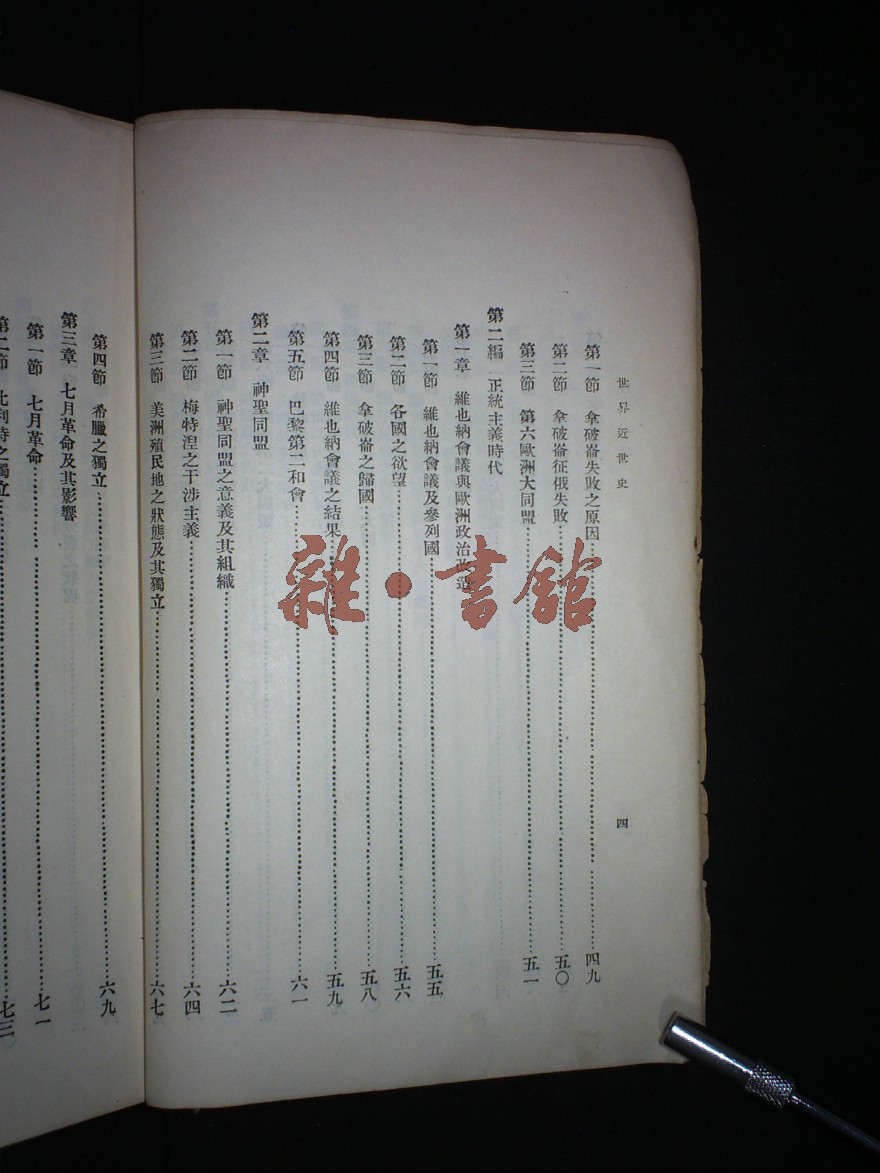 世界近世史
四
第一節 拿破崙失敗之原因………四九
第二節 拿破崙征俄失敗………五〇
第三節 第六歐洲大同盟………五一
第二編 正統主義時代
第一章 維也納會議與歐洲政治改造
第一節 維也納會議及參列國………五五
第二節 各國之欲望………五六
第三節 拿破崙之歸國………五八
第四節 維也納會議之結果………五九
第五節 巴黎第二和會………六一
第二章 神聖同盟
第一節 神聖同盟之意義及其組織………六二
第二節 梅特涅之干涉主義………六四
第三節 美洲殖民地之狀態及其獨立………六七
第四節 希臘之獨立………六九
第三章 七月革命及其影響
第一節 七月革命………七一
第二節 比利時之獨立………七三
雜·書館